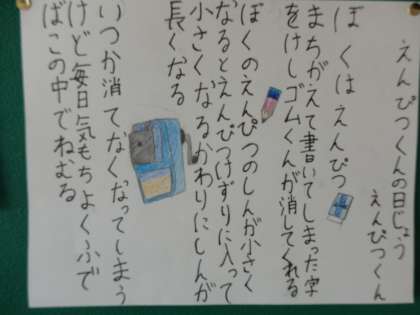 えんぴつくんの日じょう
えんぴつくん
ぼくはえんぴつ
まちがえて書いてしまった字
をけしゴムくんが消してくれる
ぼくのえんぴつのしんが小さく
なるとえんぴつけずりに入って
小さくなるかわりにしんが
長くなる
いつか消てなくなってしまう
けど毎日気もちよくふで
ばこの中でねむる